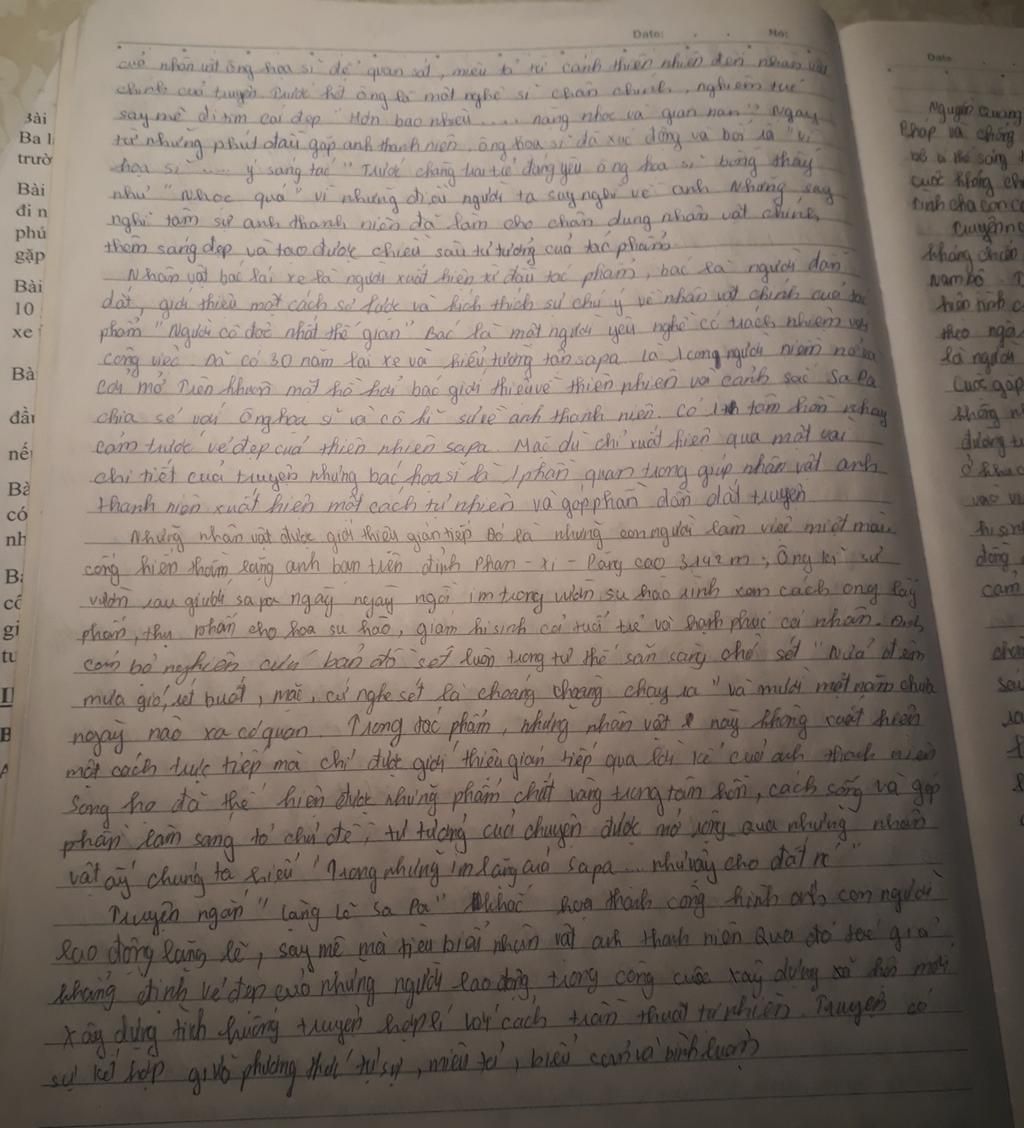 Date: No:
của nhân vật ông hoạ sĩ để quan sát, miêu tả từ cảnh thiên nhiên đến nhân vật
chính của truyện. Trước hết ông là một nghệ sĩ chân chính, nghiêm túc
say mê đi tìm cái đẹp "Hơn bao nhiêu .... nặng nhọc và gian nan" Ngay
từ những phút đầu gặp anh thanh niên, ông hoạ sĩ đã xúc động và bối rối "vì
hoạ sĩ .... ý sáng tác" Trước chàng trai trẻ đáng yêu ông hoạ sĩ bỗng thấy
như "Nhọc quá" vì những điều người ta suy nghĩ về anh Những suy
nghĩ tâm sự anh thanh niên đã làm cho chân dung nhân vật chính
thêm sáng đẹp và tạo được chiều sâu tư tưởng của tác phẩm
Nhân vật bác lái xe là người xuất hiện từ đầu tác phẩm, bác là người dẫn
dắt, giới thiệu một cách sơ lược và kích thích sự chú ý về nhân vật chính của tác
phẩm "Người cô độc nhất thế gian" Bác là một người yêu nghề có trách nhiệm với
công việc. Đã có 30 năm lái xe và hiểu tường tận sapa. Là 1 con người niềm nở và
cởi mở Trên khuôn mặt hồ hởi bác giới thiệu về thiên nhiên với cảnh sắc Sa Pa
chia sẻ với ông hoạ sĩ và cô kĩ sư về anh thanh niên. Có tâm hồn nhạy
cảm trước vẻ đẹp của thiên nhiên sapa. Mặc dù chỉ xuất hiện qua một vài
chi tiết của truyện nhưng bác hoạ sĩ là 1 phần quan trọng giúp nhân vật anh
thanh niên xuất hiện một cách tự nhiên và góp phần dẫn dắt truyện
Những nhân vật được giới thiệu gián tiếp Đó là những con người làm việc miệt mài
cống hiến thầm lặng anh bạn trên đỉnh Phan - xi - Păng cao 3142 m; Ông kĩ sư
vườn rau dưới sa pa ngày ngày ngồi im trong vườn su hào rình xem cách ong lấy
phấn, thụ phấn cho hoa su hào, giám hi sinh cả tuổi trẻ và hạnh phúc cá nhân. Anh
cán bộ nghiên cứu bản đồ sét luôn trong tư thế sẵn sàng chờ sét "Nửa đêm
mưa gió, rét buốt, mặc, cứ nghe sét là choáng choàng chạy ra" và mười một năm chưa
ngày nào xa cơ quan. Trong tác phẩm, những nhân vật này không xuất hiện
một cách trực tiếp mà chỉ được giới thiệu gián tiếp qua lời kể của anh thanh niên
Song họ đã thể hiện được những phẩm chất vàng trong tâm hồn, cách sống và góp
phần làm sáng tỏ chủ đề, tư tưởng của chuyện được mở rộng qua những nhân
vật ấy chúng ta hiểu "Trong những im lặng của sapa ... như vậy cho đất nc"
Truyện ngắn "Lặng lẽ Sa Pa" khắc hoạ thành công hình ảnh con người
lao động lặng lẽ, say mê mà tiêu biểu nhân vật anh thanh niên Qua đó tác giả
khẳng định vẻ đẹp của những người lao động trong công cuộc xây dựng xã hội mới
Xây dựng tình huống truyện hợp lí với cách trần thuật tự nhiên. Truyện có
sự kết hợp giữa phương thức tự sự, miêu tả, biểu cảm và bình luận
Bài
Ba l
trườ
Bài
đi n
phú
gặp
Bài
10
xe
Bà
đầu
nế
Bà
có
nh
Date
Nguyễn Quang
Pháp và chống
cuộc kháng ch
tình cha con c
Truyện n
kháng chiến
Nam bộ. T
theo ngà
là người
Cuộc gặp
không n